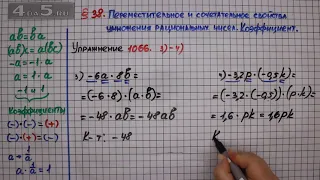 4 а 5 net
§ 38. Переместительное и сочетательное свойства
умножения рациональных чисел. Коэффициент.
ab = ba
(ab)c = a(bc)
-a = -1·a
a = 1·a
Коэффициенты
(-)·(-) = (+)
(-)·(+) = (-)
a ≠ 1/a
a · 1/a = 1
Упражнение 1066. 3)-4)
3) -6a · 8b =
= (-6·8)·(a·b) =
= -48·ab = -48ab
К-т: -48
4) -3,2p·(-0,5k) =
= (-3,2·(-0,5))·(p·k) =
= 1,6·pk = 1,6pk
К